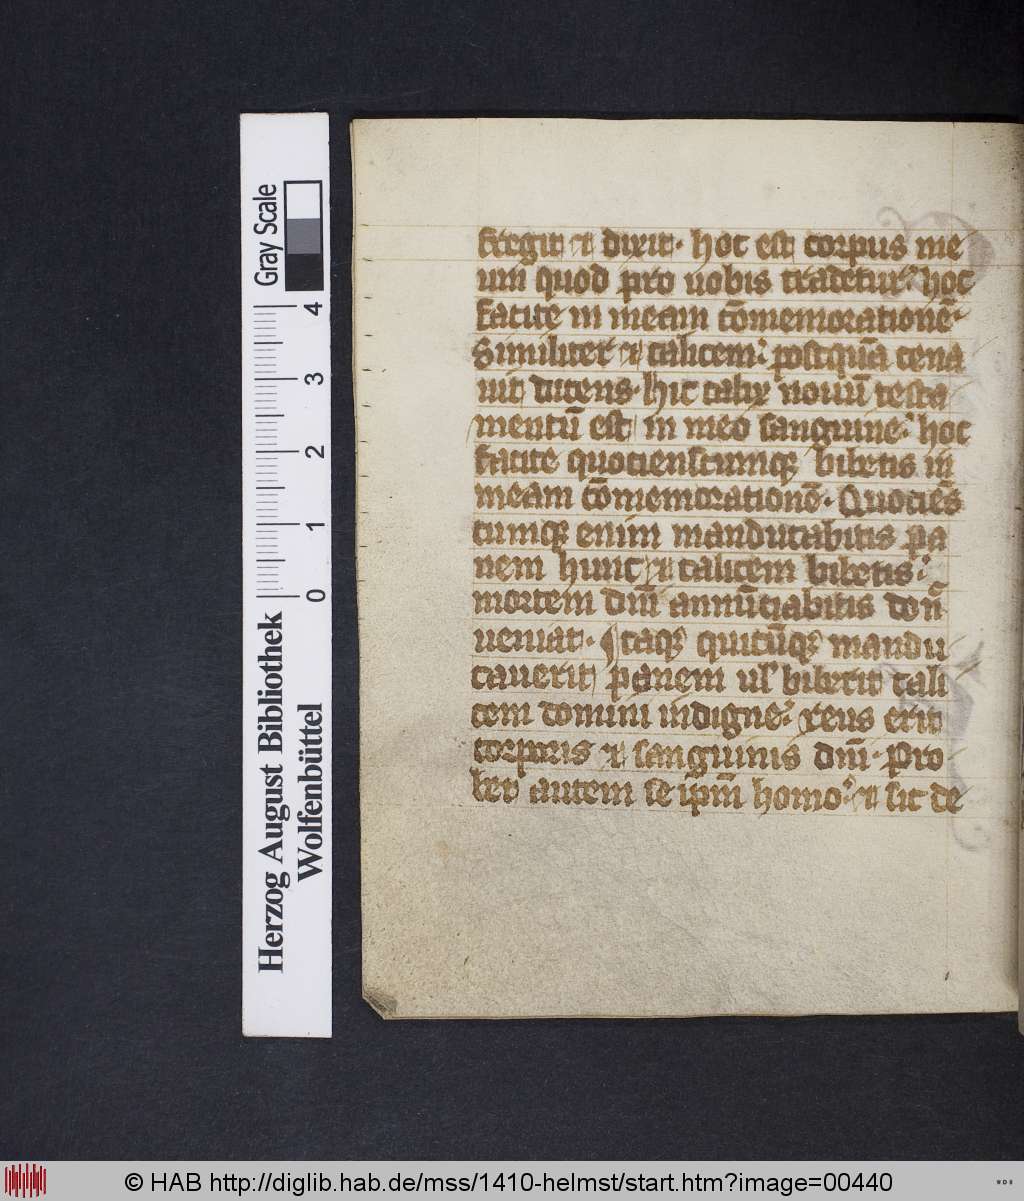 fregit et dixit· hoc est corpus me
um quod pro uobis tradetur· hoc
facite in meam cōmemorationē·
Similiter et calicem· postquā cena
uit dicens· hic calix nouū testa
mentū est in meo sanguine· hoc
facite quocienscumq; bibetis in
meam cōmemorationē· Quociēs
cumq; enim manducabitis pa
nem hunc et calicem bibetis·
mortem dn̄i annūciabitis don̄
ueniat· Itaq; quicūq; mandu
cauerit panem ul' biberit cali
cem domini indigne· reus erit
corporis et sanguinis dn̄i· Pro
bet autem se ipm̄ homo· et sic de
Gray Scale
4
3
2
1
0
Herzog August Bibliothek
Wolfenbüttel
© HAB http://diglib.hab.de/mss/1410-helmst/start.htm?image=00440